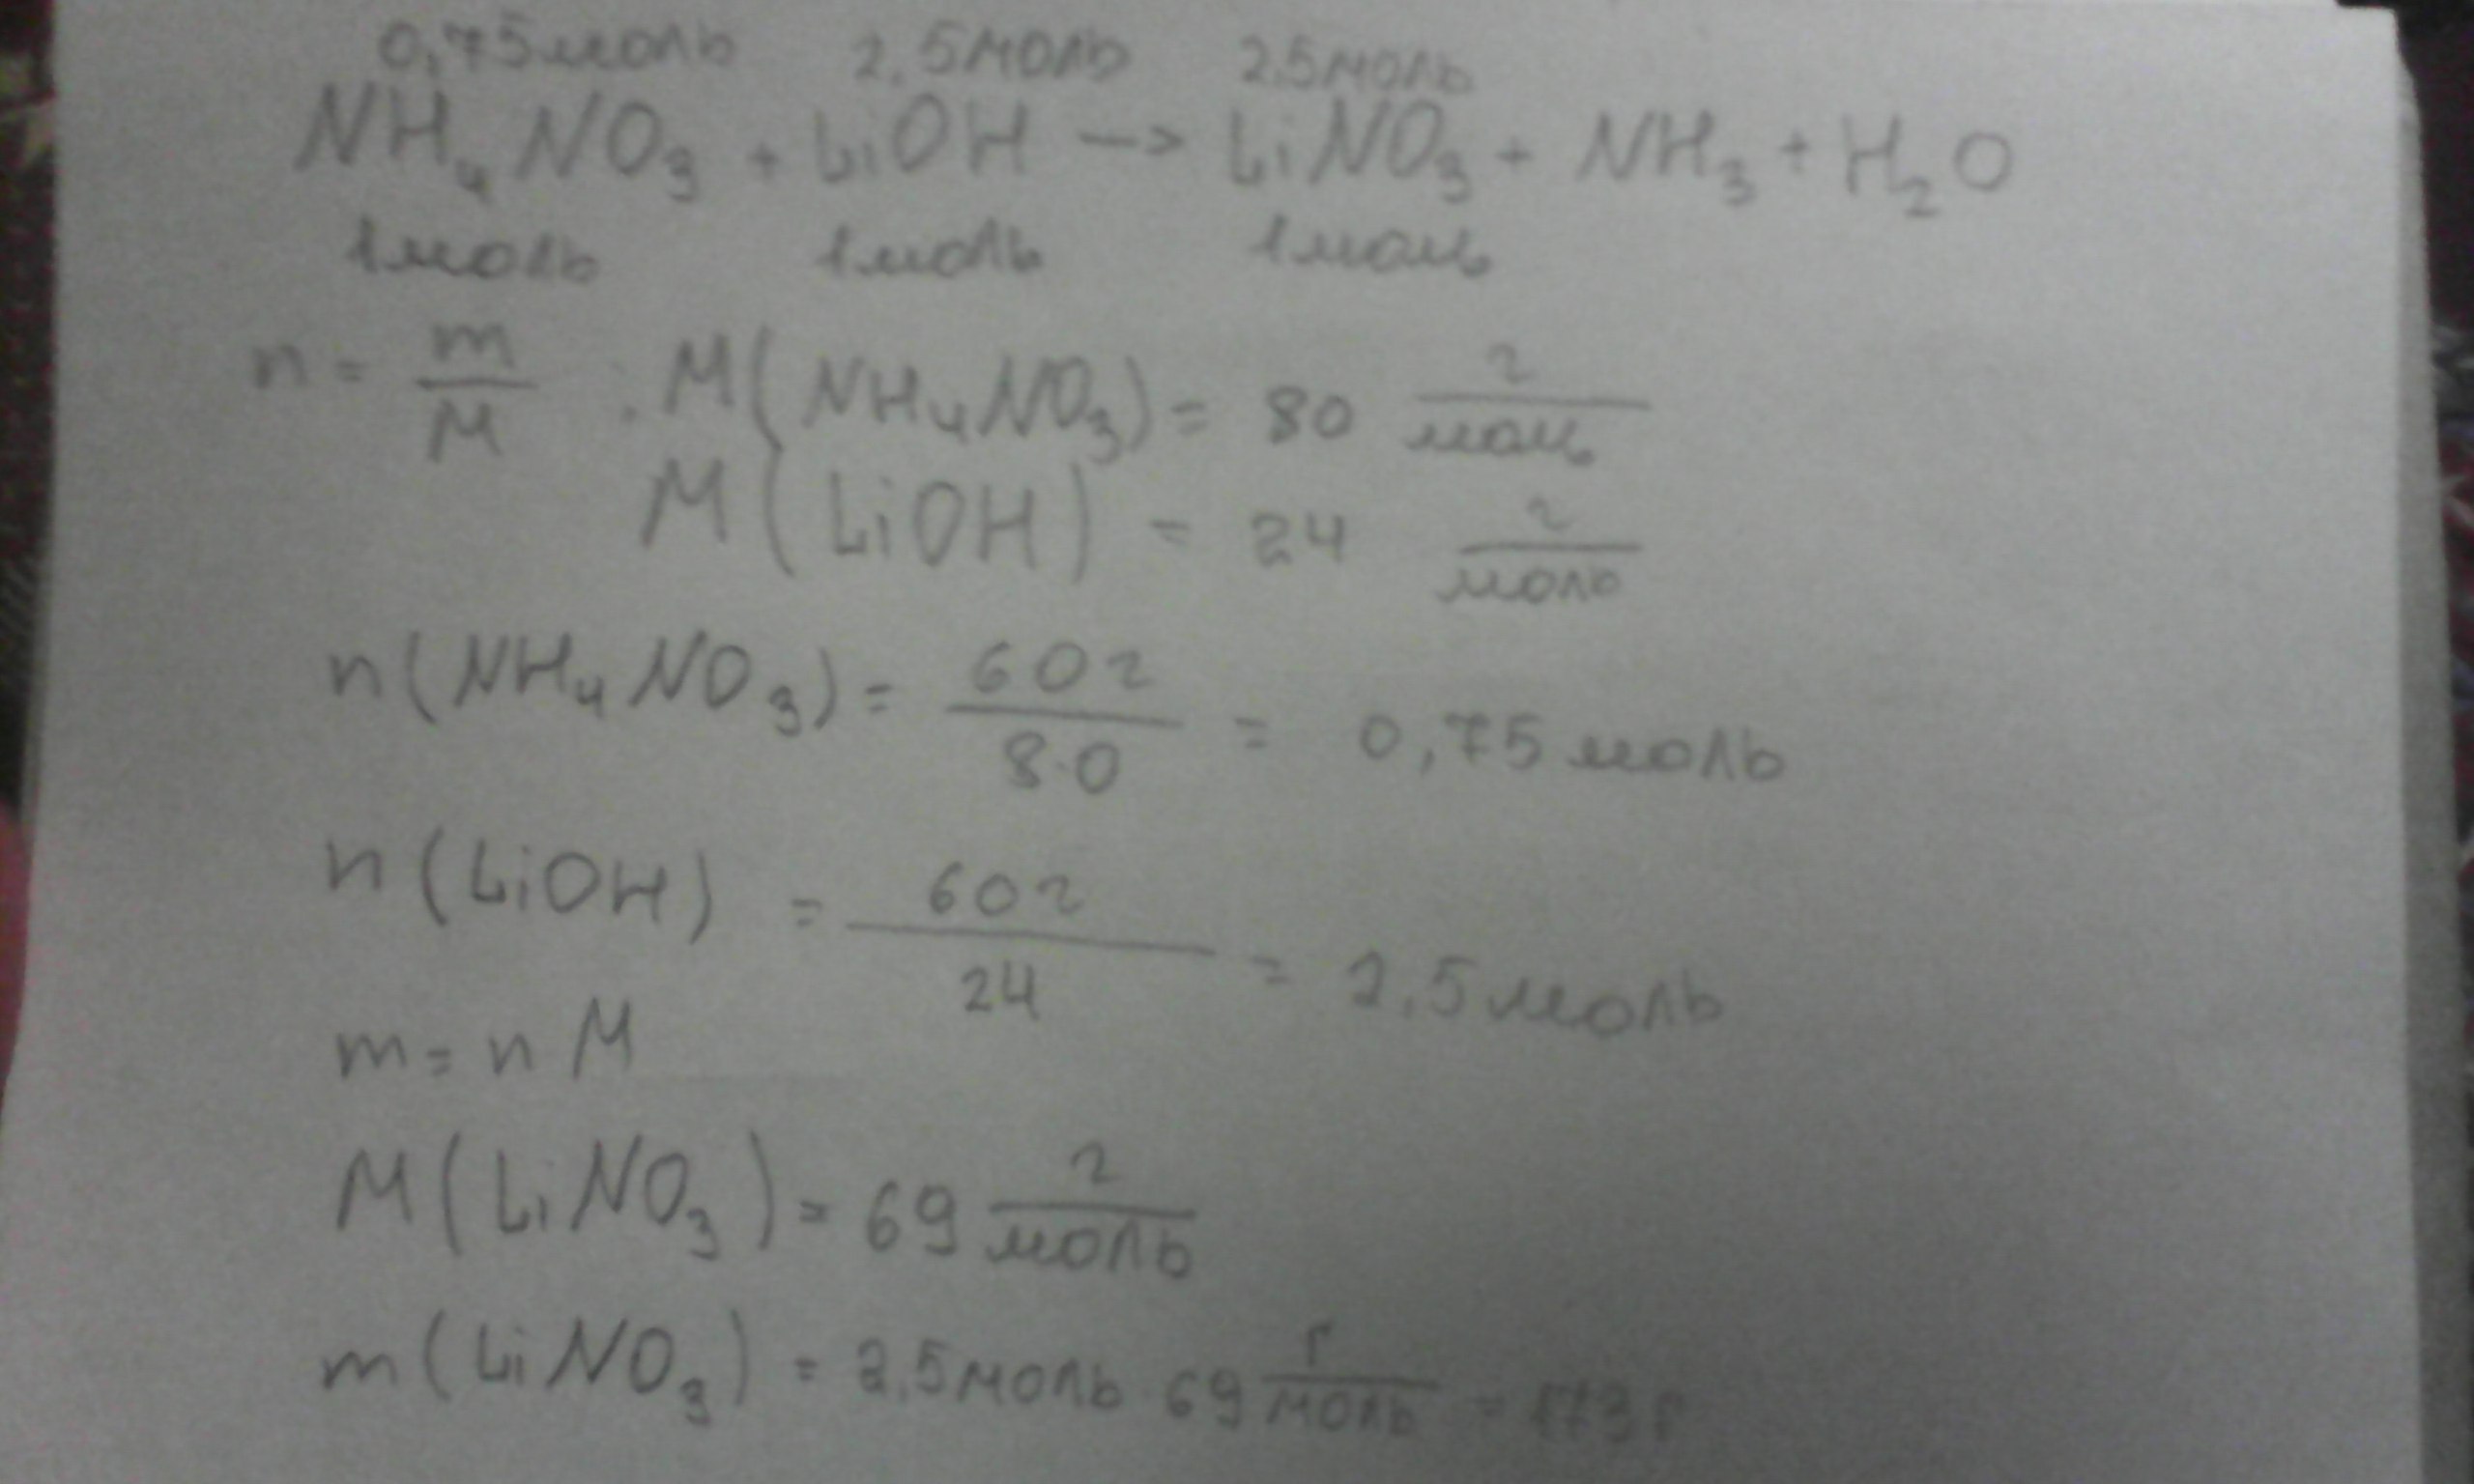 0,75моль 2,5моль 2,5моль
NH₄NO₃ + LiOH —> LiNO₃ + NH₃ + H₂O
1моль 1моль 1моль
n = m/M : M(NH₄NO₃) = 80 г/моль
M(LiOH) = 24 г/моль
n(NH₄NO₃) = 60г/80 = 0,75 моль
n(LiOH) = 60г/24 = 2,5 моль
m = n M
M(LiNO₃) = 69 г/моль
m(LiNO₃) = 2,5моль · 69 г/моль = 173 г